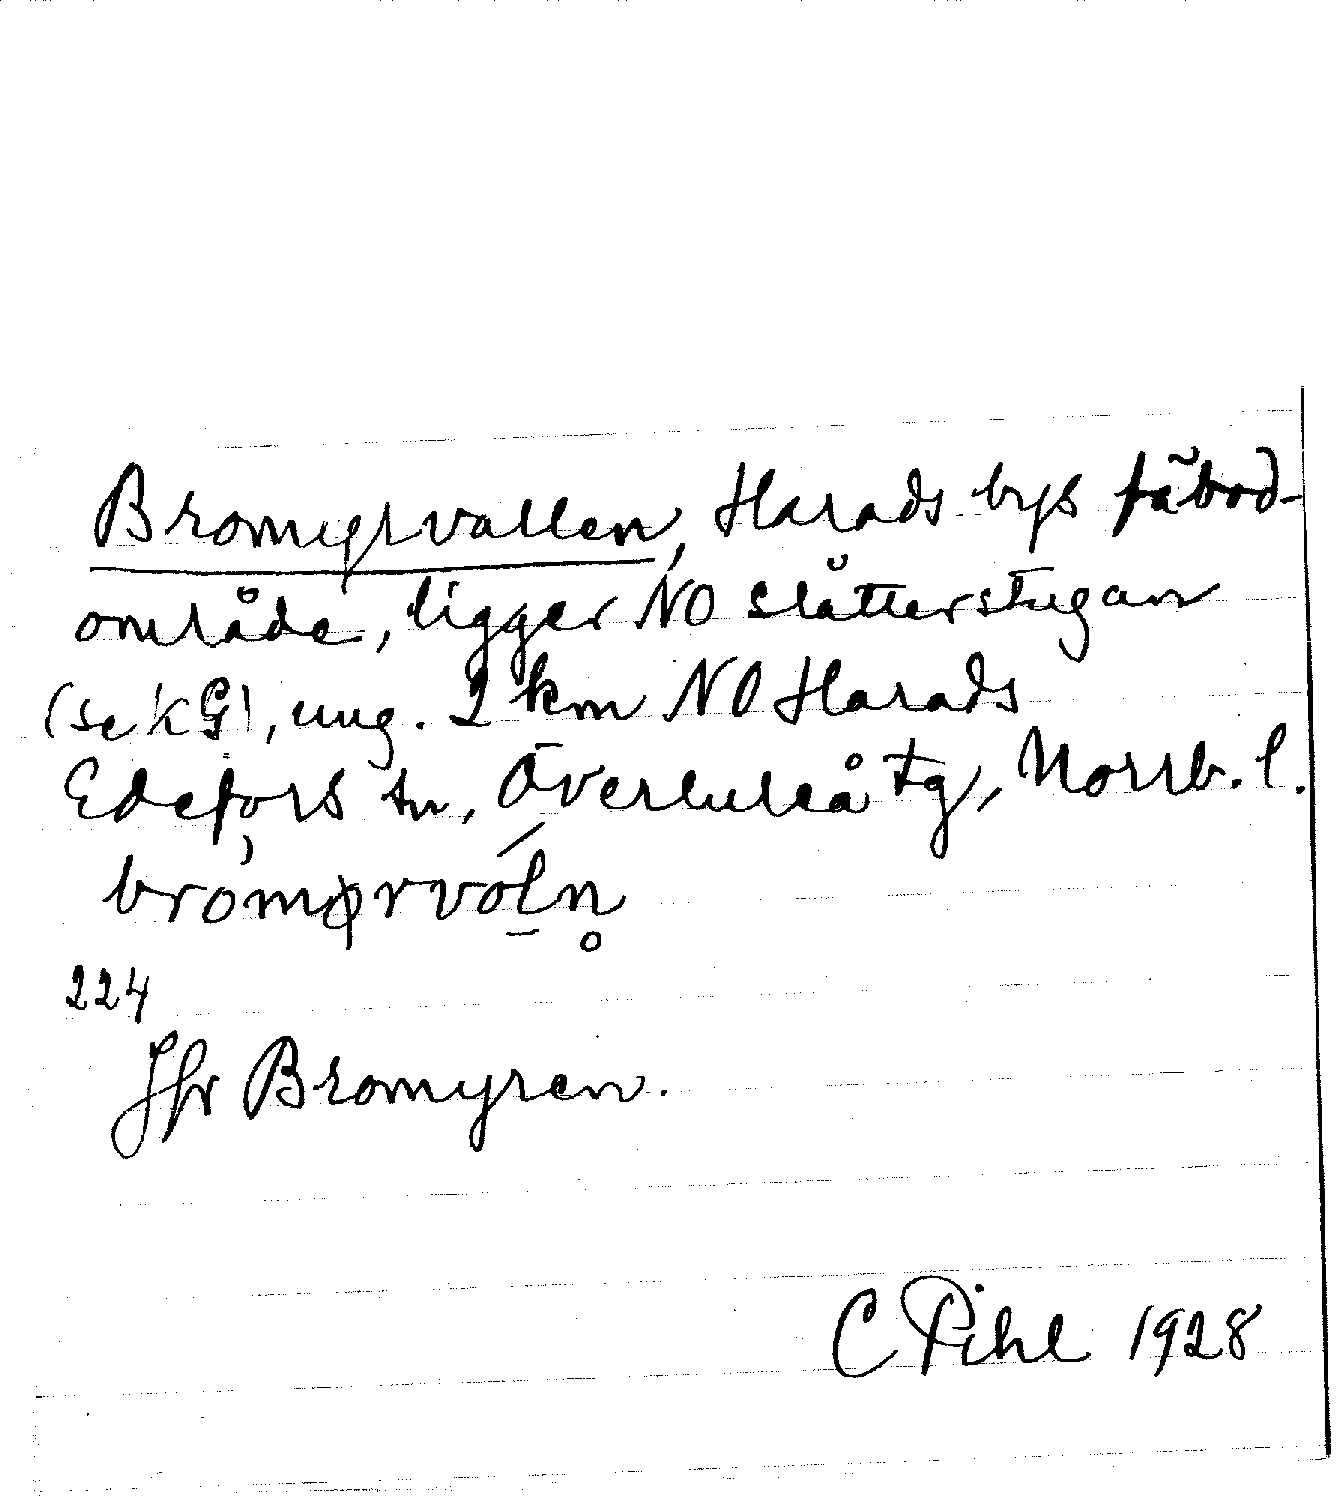 Bromyrvallen, Harads bys fäbod-
område, ligger NO slåtterstugan
(se KG), ung. 2 km NO Harads
Edefors sn, Överluleå tg, Norrb. l.
bromørvòln̥
224
Jfr Bromyren.
C Pihl 1928